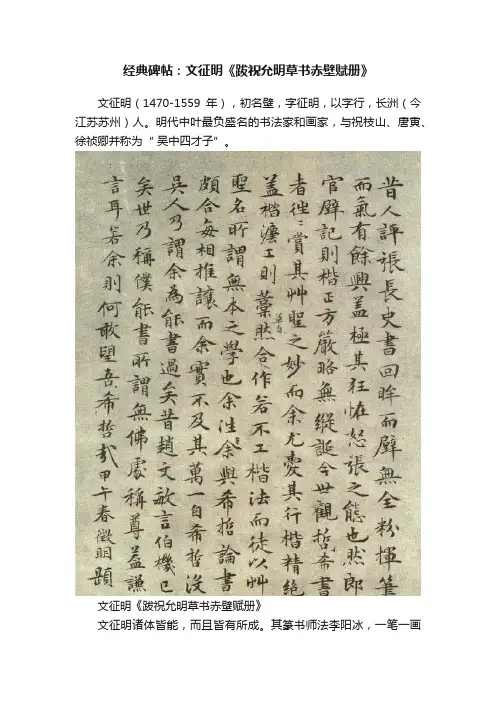 经典碑帖：文征明《跋祝允明草书赤壁赋册》
文征明（1470-1559 年），初名壁，字征明，以字行，长洲（今
江苏苏州）人。明代中叶最负盛名的书法家和画家，与祝枝山、唐寅、
徐祯卿并称为“ 吴中四才子”。
昔人評張長史書回眸而壁無全粉揮筆
而氣有餘興蓋極其狂怪怒張之態也然郎
官壁記則楷正方嚴略無縱誕今世觀哲希書
者徃〻賞其艸聖之妙而余尤愛其行楷精絕
蓋楷灋工則藁草自然合作若不工楷法而徒以艸
聖名所謂無本之學也余往余與希哲論書
頗合每相推讓而余實不及其萬一自希哲沒
吳人乃謂余為能書過矣昔趙文敏言伯機已
矣世乃稱僕能書所謂無佛處稱尊蓋謙
言耳若余則何敢望吾希哲哉甲午春徵明題
文征明《跋祝允明草书赤壁赋册》
文征明诸体皆能，而且皆有所成。其篆书师法李阳冰，一笔一画